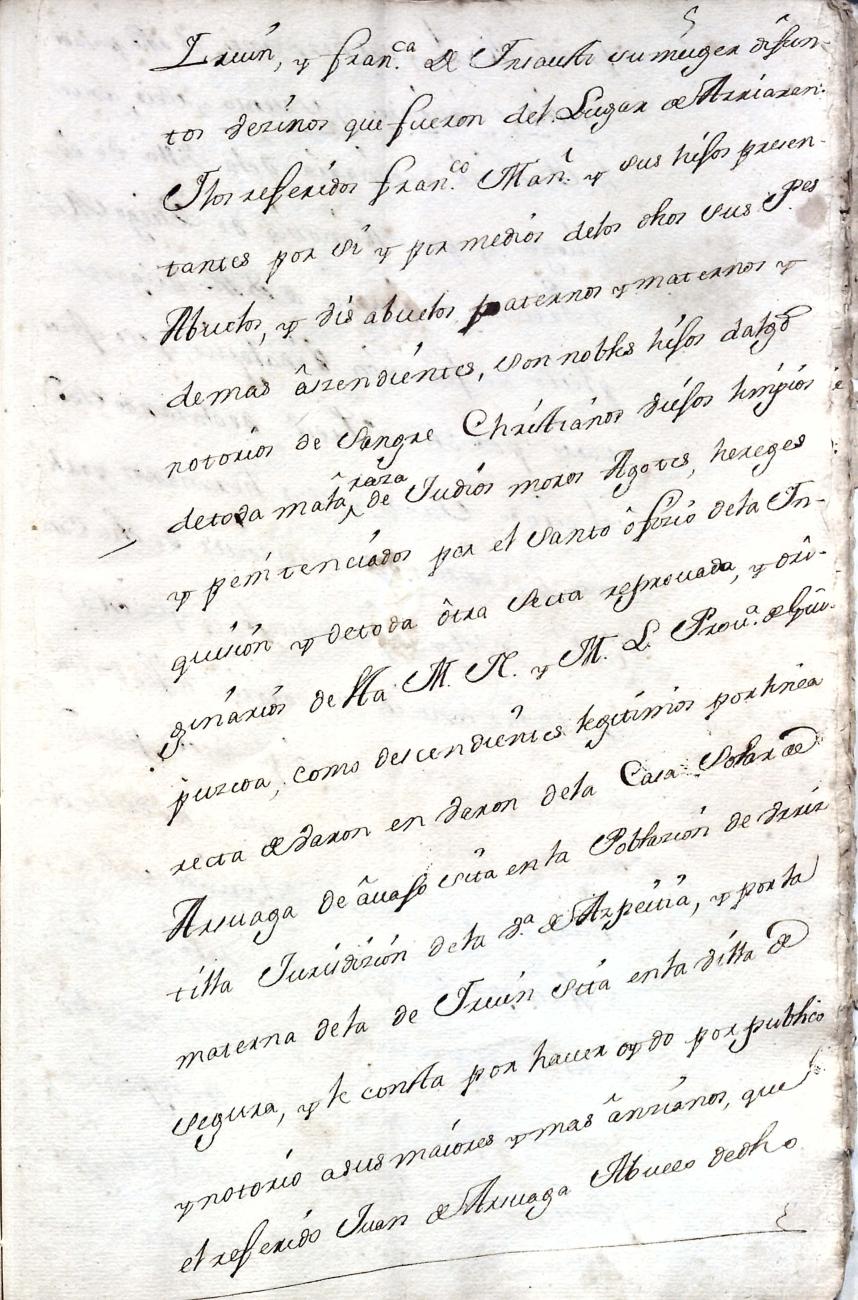 Iruin, y fran.ca de Insausti su muger difun-
tos vezinos que fueron del Lugar de Arriaran.
Y los referidos fran.co Man.l y sus hijos presen-
tantes por si y por medios delos dhos sus Pes
Abuelos, y vis abuelos paternos y maternos y
demas aszendientes, son nobles hijos dalgo
notorios de Sangre Christianos viejos limpios
de toda mala raza de Judios moros Agotes, hereges
y penitenciados por el Santo ôfizio dela In-
quision y de toda ôtra Secta reprovada, y ôri-
ginarios de sta M. N. y M. L. Prov.a de Gui-
puzcoa, como descendientes legitimos por linea
recta de varon en varon dela Casa Solar de
Arsuaga de âvajo sita en la Poblazion de Vrrix
tilla Jurisdizion dela V.a de Azpeitia, y por la
materna dela de Iruin sita en la villa de
Segura, y le consta por haver oydo por publico
y notorio a sus maiores y mas ânzianos, que
el referido Juan de Arsuaga Abuelo de dho